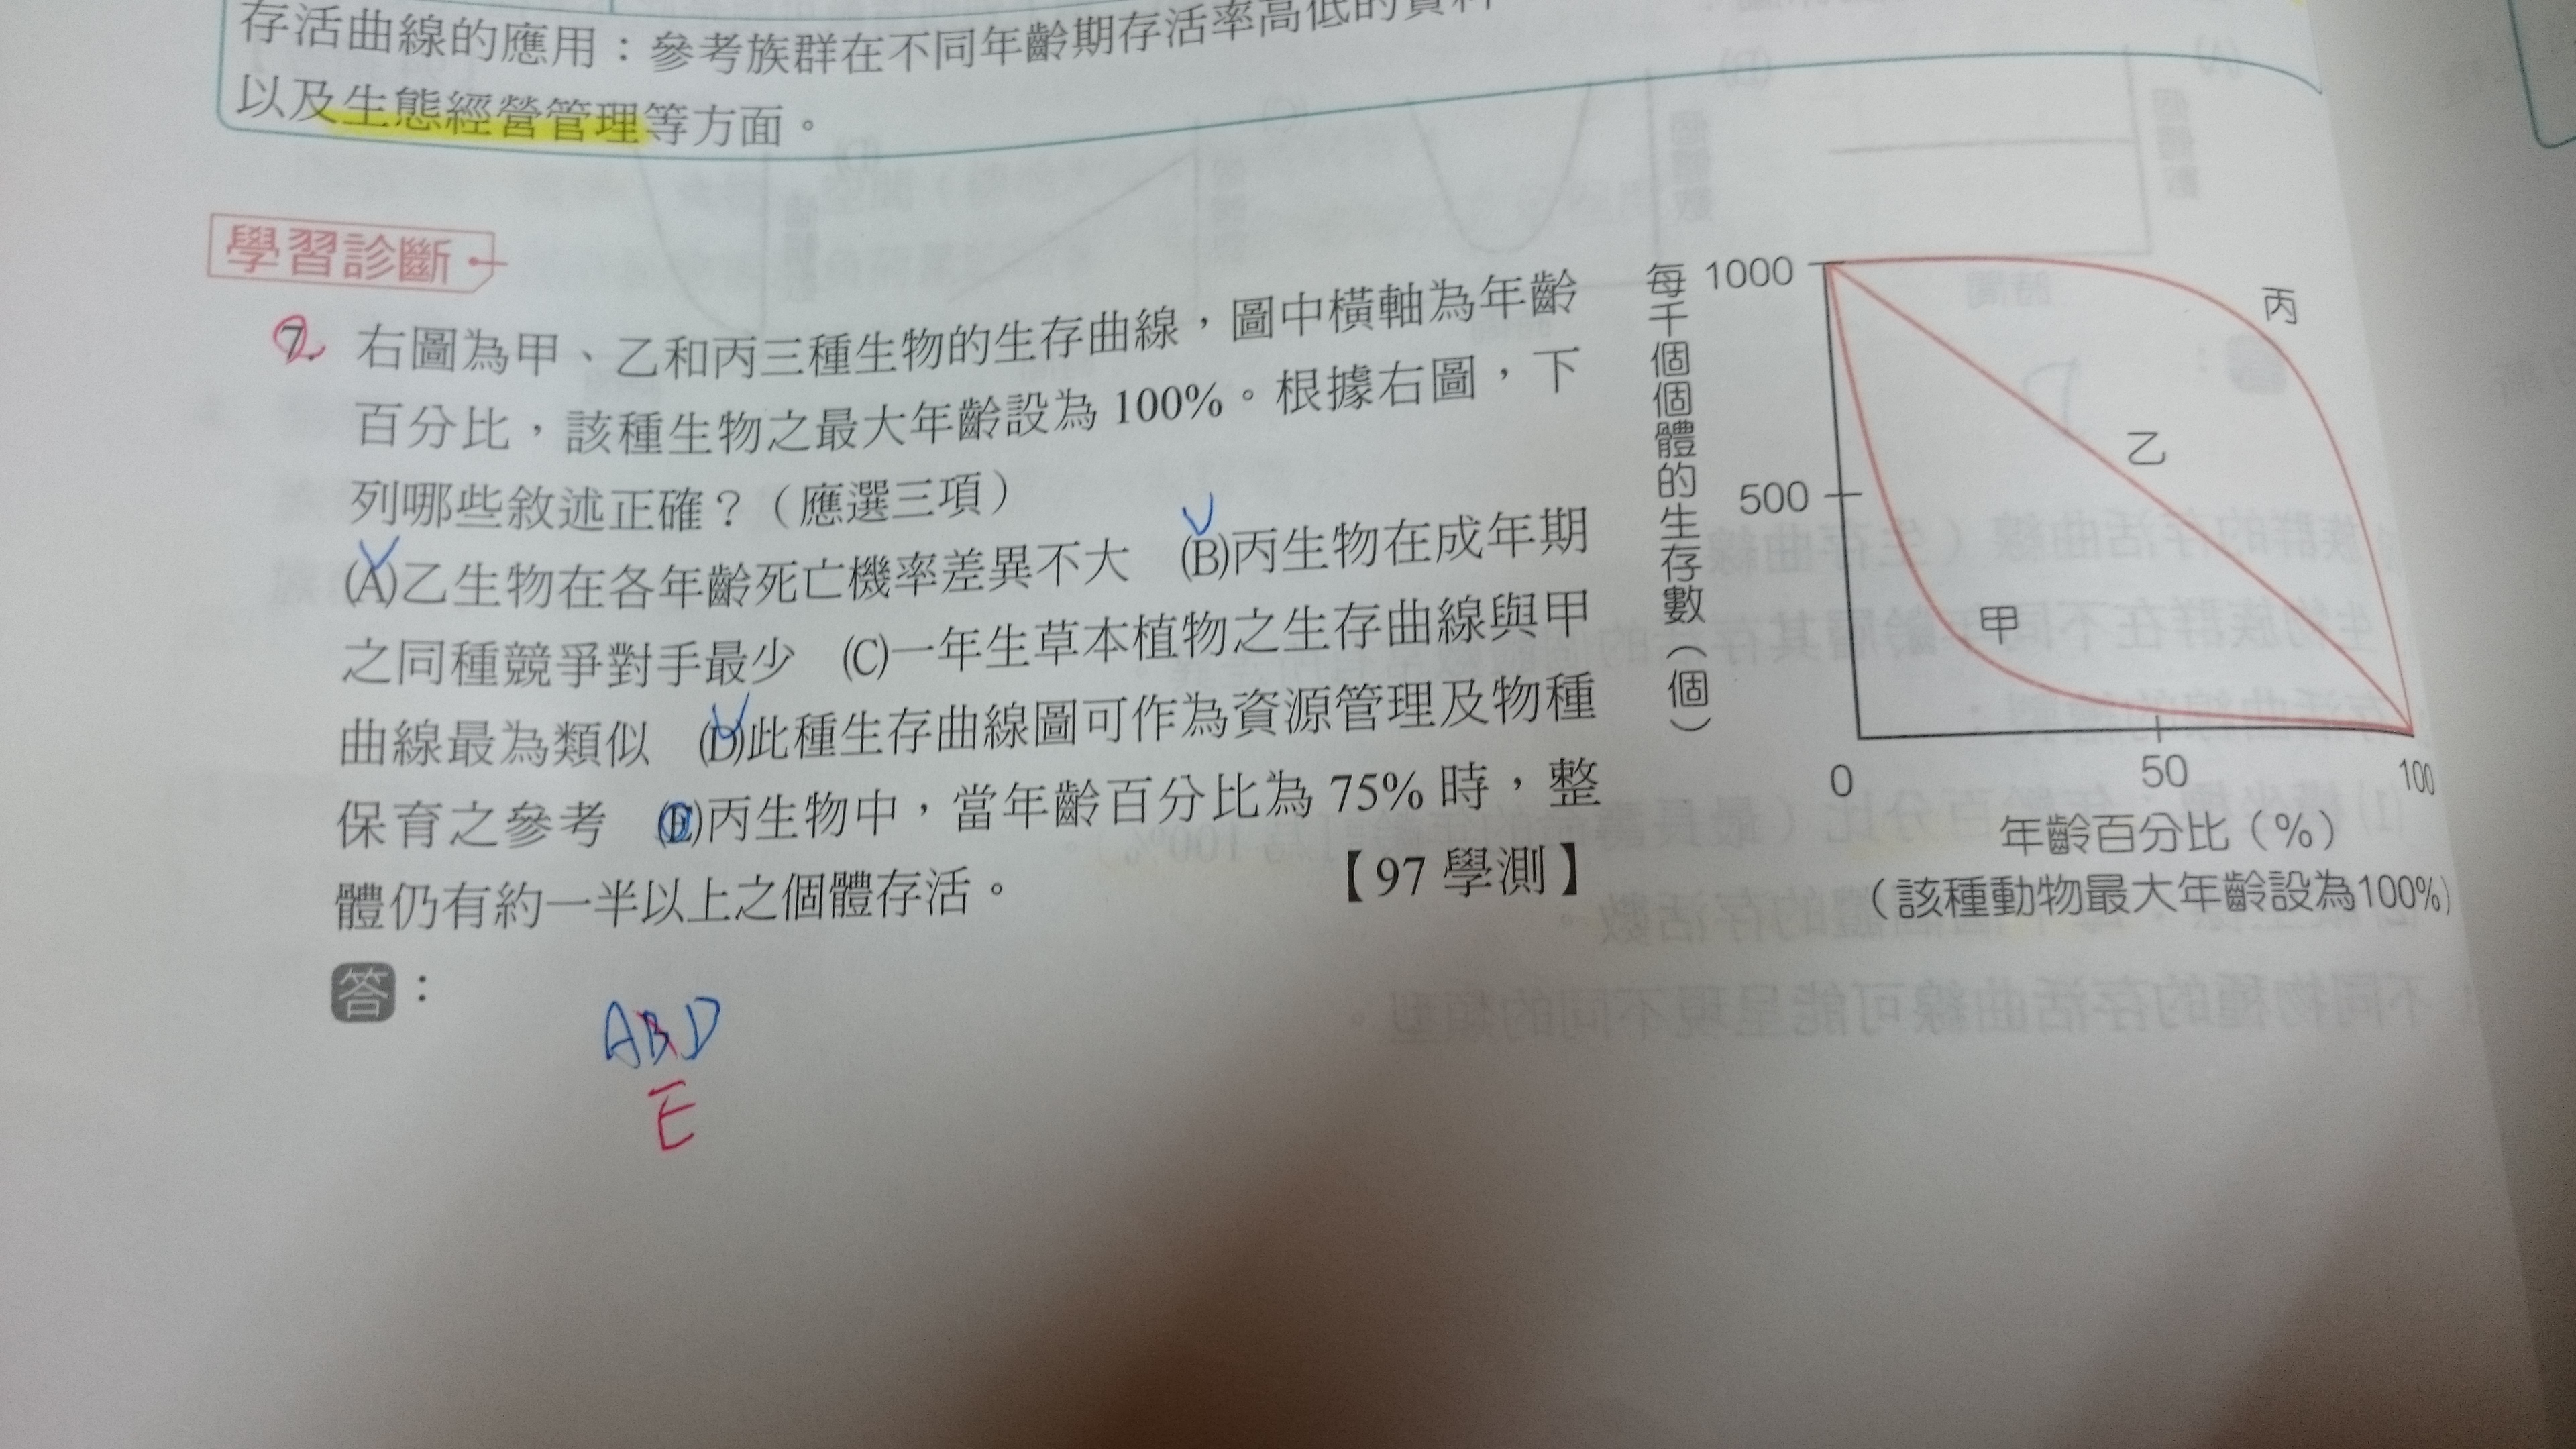 存活曲線的應用：參考族群在不同年齡期存活率高低的資料
以及生態經營管理等方面。
學習診斷
7. 右圖為甲、乙和丙三種生物的生存曲線，圖中橫軸為年齡
百分比，該種生物之最大年齡設為 100%。根據右圖，下
列哪些敘述正確？（應選三項）
(A)乙生物在各年齡死亡機率差異不大 (B)丙生物在成年期
之同種競爭對手最少 (C)一年生草本植物之生存曲線與甲
曲線最為類似 (D)此種生存曲線圖可作為資源管理及物種
保育之參考 (E)丙生物中，當年齡百分比為 75% 時，整
體仍有約一半以上之個體存活。
【97 學測】
答：
ABD
E
每千個個體的生存數（個）
1000
500
丙
乙
甲
0
50
100
年齡百分比（%）
（該種動物最大年齡設為100%）